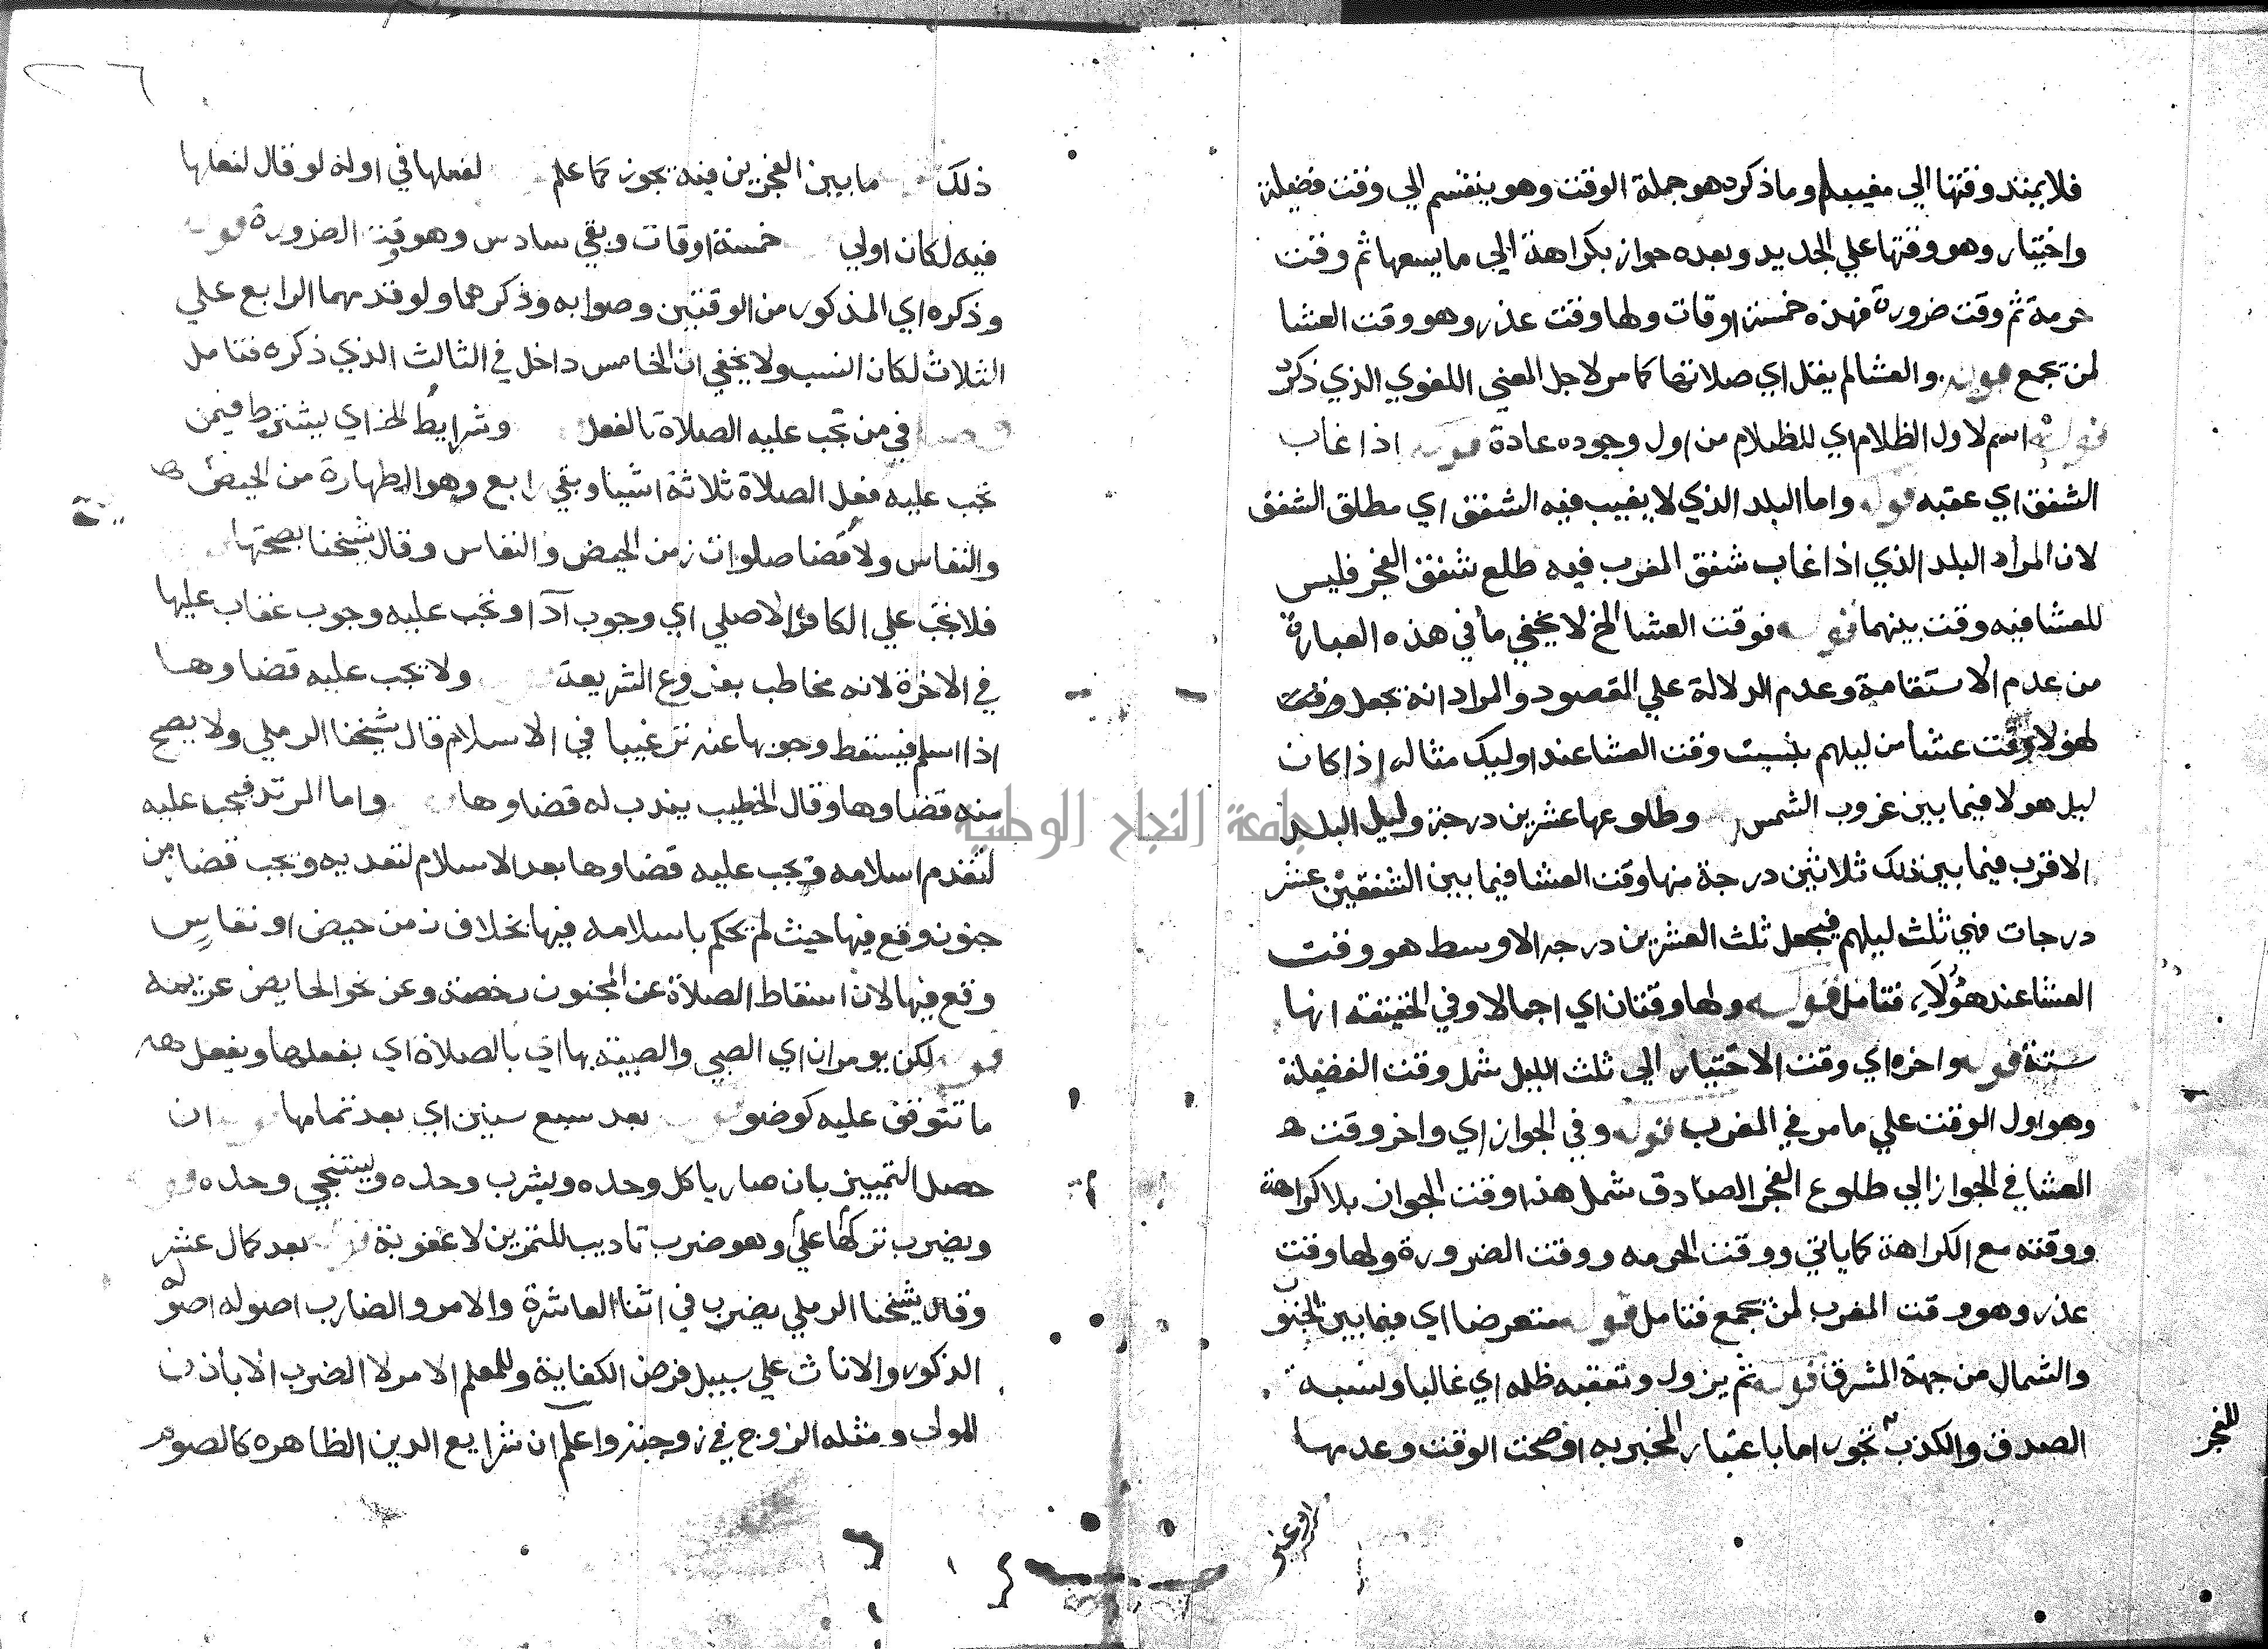 فلا يمتد وقتها الي مغيبه وما ذكره هو جملة الوقت وهو ينقسم الي وقت فضيلة
واختيار وهو وقتها علي الجديد وبعده جواز بكراهة الي ما يسعها ثم وقت
حرمة ثم وقت ضرورة فهذه خمسة اوقات ولها وقت عذر وهو وقت العشا
لمن يجمع قوله والعشا لم يقل اي صلاتها كما مر لاجل المعني اللغوي الذي ذكره
قوله اسم لاول الظلام اي للظلام من اول وجوده عادة قوله اذا غاب
الشفق اي عقبه قوله واما البلد الذي لا يغيب فيه الشفق اي مطلق الشفق
لان المراد البلد الذي اذا غاب شفق المغرب فيه طلع شفق الفجر فليس
للعشا فيه وقت بينهما قوله فوقت العشا الخ لا يخفي ما في هذه العبارة
من عدم الاستقامة وعدم الدلالة علي المقصود والمراد انه يجعل
لهولا وقت عشا من ليلهم بنسبت وقت العشا عند اوليك مثاله اذا كان
ليل هولا فيما بين غروب الشمس وطلوعها عشرين درجة وليل البلد
الاقرب فيما بين ذلك ثلاثين درجة منها وقت العشا فيما بين الشفقين عشر
درجات فهي ثلث ليلهم فيجعل ثلث العشرين درجه الاوسط هو وقت
العشا عند هؤلاء فتامل قوله ولها وقتان اي اجمالا وفي الحقيقة انها
ستة قوله واخره اي وقت الاختيار الي ثلث الليل شمل وقت الفضيلة
وهو اول الوقت علي ما مر في المغرب قوله وفي الجواز اي واخر وقت
العشا في الجواز الي طلوع الفجر الصادق شمل هذا وقت الجواز بلا كراهة
ووقته مع الكراهة كما ياتي ووقت الحرمه ووقت الضرورة ولها وقت
عذر وهو وقت المغرب لمن يجمع فتامل قوله معترضا اي فيما بين الجنوب
والشمال من جهة المشرق قوله ثم يزول وتعقبه ظلمه اي غالبا ونسبة
الصدق والكذب تجوز اما باعتبار المخبر به او صحت الوقت وعدمها
للفجر
ذلك ما بين الفجرين فيه تجوز كما علم لفعلها في اوله لو قال لفعلها
فيه لكان اولي خمسة اوقات وبقي سادس وهو وقت الضرورة قوله
وذكره اي المذكور من الوقتين وصوابه وذكرهما ولو قدمهما الرابع علي
الثلاث لكان انسب ولا يخفي ان الخامس داخل في الثالث الذي ذكره فتامل
فصل في من تجب عليه الصلاة بالفعل وشرايط الخ اي يشترط فيمن
تجب عليه فعل الصلاة ثلاثة اشيا وبقي رابع وهو الطهارة من الحيض
والنفاس ولا قضا صلوات زمن الحيض والنفاس وقال شيخنا بصحتها
فلا تجب علي الكافر الاصلي اي وجوب ادا وتجب عليه وجوب عقاب عليها
في الاخرة لانه مخاطب بفروع الشريعة ولا تجب عليه قضاوها
اذا اسلم فيسقط وجوبها عنه ترغيبا في الاسلام قال شيخنا الرملي ولا يصح
منه قضاوها وقال الخطيب يندب له قضاوها واما المرتد فيجب عليه
لتقدم اسلامه ويجب عليه قضاوها بعد الاسلام لتعديه ويجب قضا من
جنون وقع فيها حيث لم يحكم باسلامه فيها بخلاف زمن حيض او نفاس
وقع فيها لان اسقاط الصلاة عن المجنون رخصة وعن نحو الحايض عزيمه
قوله لكن يومران اي الصبي والصبية بها اي بالصلاة اي بفعلها وبفعل
ما تتوقف عليه كوضو بعد سبع سنين اي بعد تمامها ان
حصل التمييز بان صار ياكل وحده ويشرب وحده ويستنجي وحده قوله
ويضرب تركها علي وهو ضرب تاديب للتمرين لا عقوبة قوله بعد كمال عشر
وقال شيخنا الرملي يضرب في اثنا العاشرة والامر والضارب اصوله
الذكور والاناث علي سبيل فرض الكفاية وللمعلم الامر لا الضرب الا باذن
المولي ومثله الزوج في زوجته واعلم ان شرايع الدين الظاهره كالصوم
جامعة النجاح الوطنية